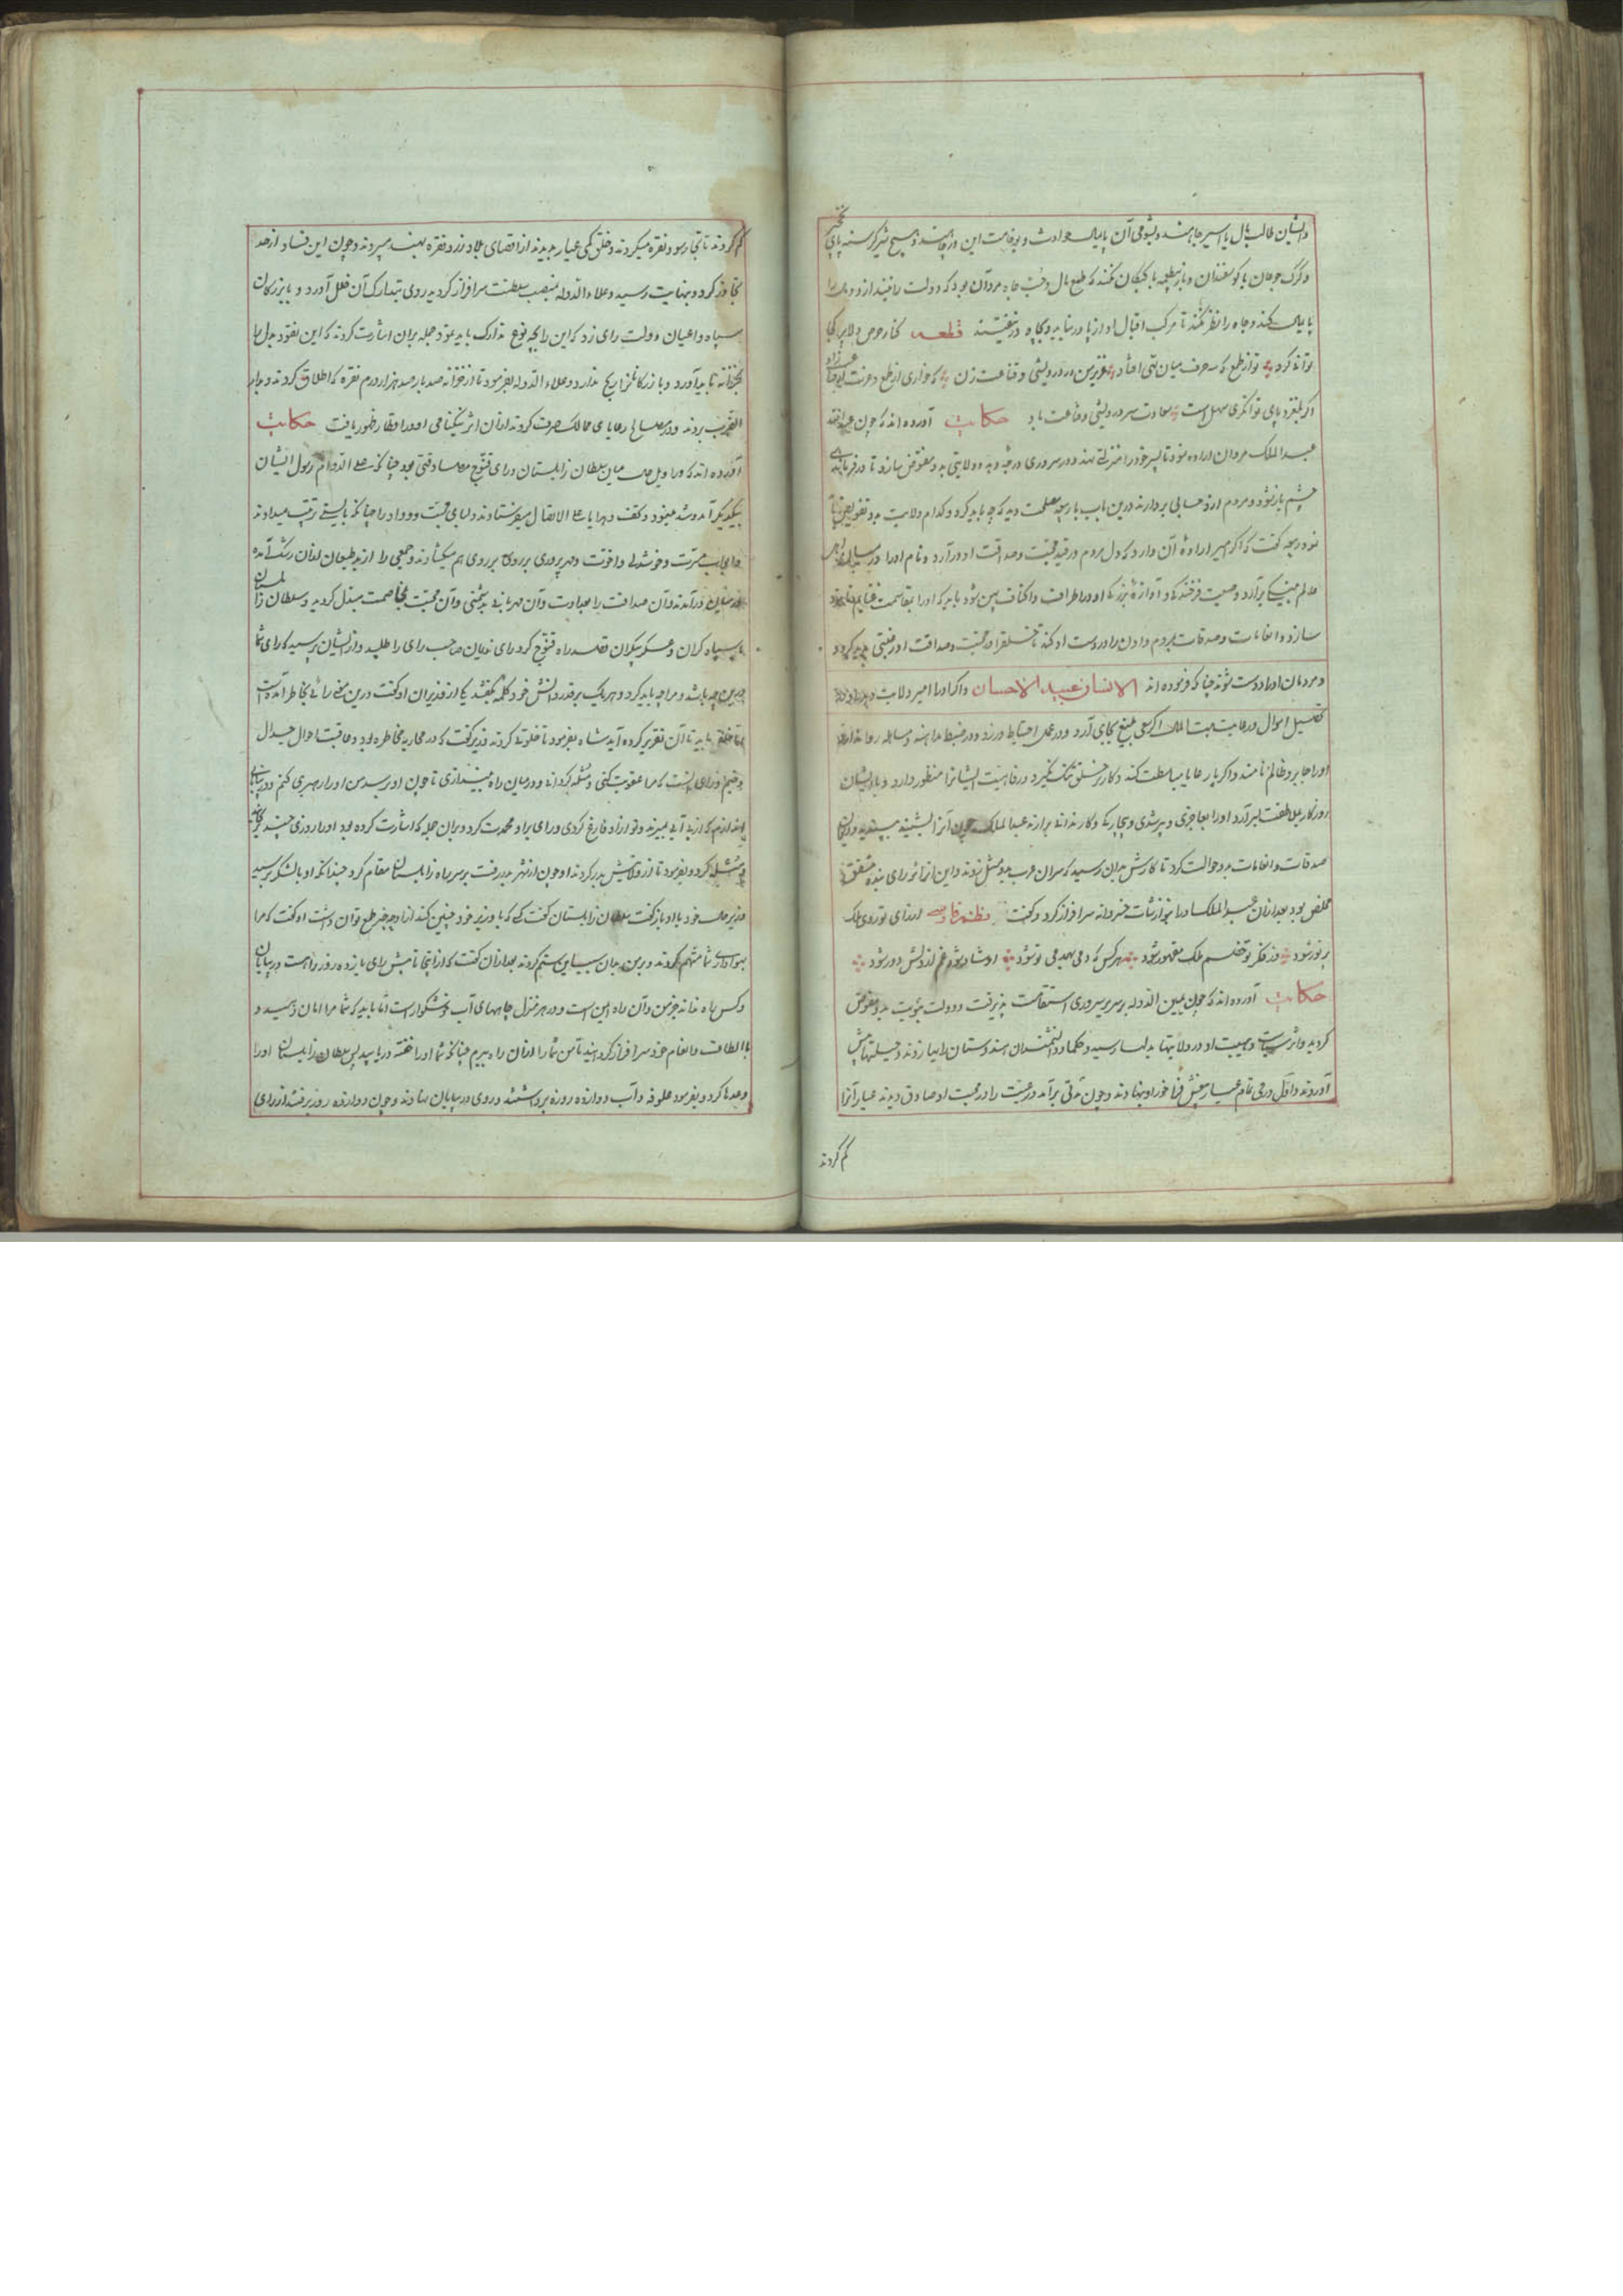 و ایشان طالب مال یا اسیر جاهند و بشومی آن پایمال حوادث و بوخامت این و هیچ شیر گرسنه پای
و گرگ جوعان با گوسفندان و باز طعمه با کبکان نکند که طمع مال و حب جاه مردان بود که دولت را
پایمال کند و جاه را نظر نکند تا مرکب اقبال او از پا درنیاید و بگاه و قطعه کنار حرص و لا پر کجا
تواند کرد تو از طمع که سه حرف میان تهی افتاد عزیز من در درویشی و قناعت زن که خواری از طمع و عزت
اگر بلغزد پای توانگری سهل است سعادت سر درویشی و قناعت باد حکایت آورده‌اند که چون
عبد الملک مروان اراده نمود تا پسر خود را منزلتی نهد و در سروری درجه دهد و ولایتی بدو مفوض سازد تا
چشم باز شود و مردم ازو حسابی بردارند درین باب با مصلحت دید که چه باید کرد و کدام ولایت بدو تفویض
نمود گفت که اگر امیر اراده آن دارد که دل مردم در قید محبت و صداقت او درآرد و نام او را در
عالم به نیکی برآرد و صیت فرخندگی و آوازه بزرگی او در اطراف و اکناف پهن شود باید که او را بقاسمت غنایم
سازد و انعامات و صدقات بمردم دادن را در دست او کند تا خلق را در محبت و صداقت او رغبتی پدید گردد
و مردمان او را دوست شوند چنانکه فرموده‌اند الانسان عبید الاحسان و اگر او را امیر ولایت
تحصیل اموال و رعایت بیت المال اگر سعی بلیغ بجای آرد و در عمل احتیاط ورزد و در ضبط مداهنه و مساهله روا ندارد
او را جابر و ظالم نامند و اگر با رعایا مباسطت کند و کار بر خلق تنگ نگیرد و رفاهیت ایشان را منظور دارد و با ایشان
روزگار بملاطفت بسر آرد او را بعاجزی و بیچارگی و کار ندانی بردارند عبد الملک چون آن را بشنید بپسندید
صدقات و انعامات بدو حوالت کرد تا کارش بدان رسید که سران عرب بدو مثل زدند و این از اثر رای بنده مشفق
مخلص بود بعد ازان عبد الملک او را بنوازشات خسروانه سرافراز کرد و گفت نظم فارسی ای از رای تو روی ملک
پر نور شود وز فکر تو خصم ملک مقهور شود هر کس که دمی همدمی تو شود او شاد شود غم از دلش دور شود
حکایت آورده‌اند که چون یمین الدوله بر سریر سروری استقامت پذیرفت و دولت بدو مفوض
گردید و اثر سیاست و هیبت او در ولایتها بدلها رسید و حکما و دانشمندان هندوستان رای زدند و حیلتها پیش
آوردند و اول درمی تمام عیار پیش فراخور او بنهادند و چون مدتی برآمد و رعیت را در محبت او صادق دیدند عیار آن را
کم کردند
کم کردند تا تجار سود نقره میکردند و خلق کمی عیار ندیدند از اقصای بلاد زر و نقره بهند میبردند و چون این فساد از حد
تجاوز کرد و بنهایت رسید و علاء الدوله بمنصب سلطنت سرافراز گردید روی بتدارک آن خلل آورد و با بزرگان
سپاه و اعیان دولت رای زد که این را بچه نوع تدارک باید نمود جمله بران اشارت کردند که این نقود بدل را
بخزانه باید آورد و بازرگانان را رنج ندارد و علاء الدوله بفرمود تا از خزانه صد بار صد هزار درم نقره که اطلاق کردند و بدار
الضرب بردند و در مصالح رعایای ممالک صرف کردند ازان اثر نیکنامی او در اقطار ظهور یافت حکایت
آورده‌اند که در اوایل میان سلطان زابلستان و رای قنوج مصادقتی بود چنانکه علی الدوام رسول ایشان
بیکدیگر آمد و شد مینمود و تحف و هدایا علی الاتصال میفرستادند و مبانی محبت و وداد را چنانکه بایستی ترتیب میدادند
و ابواب مسرت و خوشدلی و اخوت و مهرپروری بر روی هم میگشادند و جمعی را از بد طبعان ازان رشک آمده
در میان درآمدند و آن صداقت را بعداوت و آن مهربانی بدشمنی و آن محبت بمخاصمت مبدل گردید و سلطان زابلستان
با سپاه گران و عسکر بیکران قصد راه قنوج کرد رای ندیمان صاحب رای را طلبید و از ایشان پرسید که رای شما
درین چه باشد و مرا چه باید کرد و هر یک بر قدر دانش خود کلمه بگفتند یکی از وزیران او گفت درین معنی رائی بخاطر آمده است
اما خلوتی باید تا آن تقریر کرده آید شاه بفرمود تا خلوتی کردند وزیر گفت که در محاربه مخاطره بود و عاقبت احوال جدال
وخیم و رای آنست که مرا عقوبت کنی و مثله گردانی و در میان راه بیندازی تا چون او برسد من او را رهبری کنم و در بیابانی
اندازم که از بی آبی بمیرند و تو ازو فارغ گردی رای بر او محمدت کرد و بران جمله که اشارت کرده بود او را روزی چند
و مثله کرد و بفرمود تا از ولایتش بدر کردند او چون از شهر بدر رفت بر سر راه زابلستان مقام کرد چندانکه او با لشکر برسید
وزیر حال خود با او باز گفت سلطان زابلستان گفت کسی که با وزیر خود چنین کند ازو چه خیر طمع توان داشت او گفت که مرا
بهواداری شما متهم کردند و برین جان سیاست بستم کردند بعد ازان گفت که از اینجا تا پیش رای پانزده روز راهست در بیابان
و کس راه نداند جز من و آن راه ایمن است و در هر منزل چاههای آب خوشگوار است اما باید که شما مرا امان دهید و
با الطاف و انعام خود سرافراز گردانید تا من شما را ازان راه ببرم چنانکه شما او را خفته دریابید پس سلطان زابلستان او را
وعدها کرد و بفرمود علوفه و آب دوازده روزه برداشتند و روی در بیابان نهادند و چون دوازده روز برفتند از رای